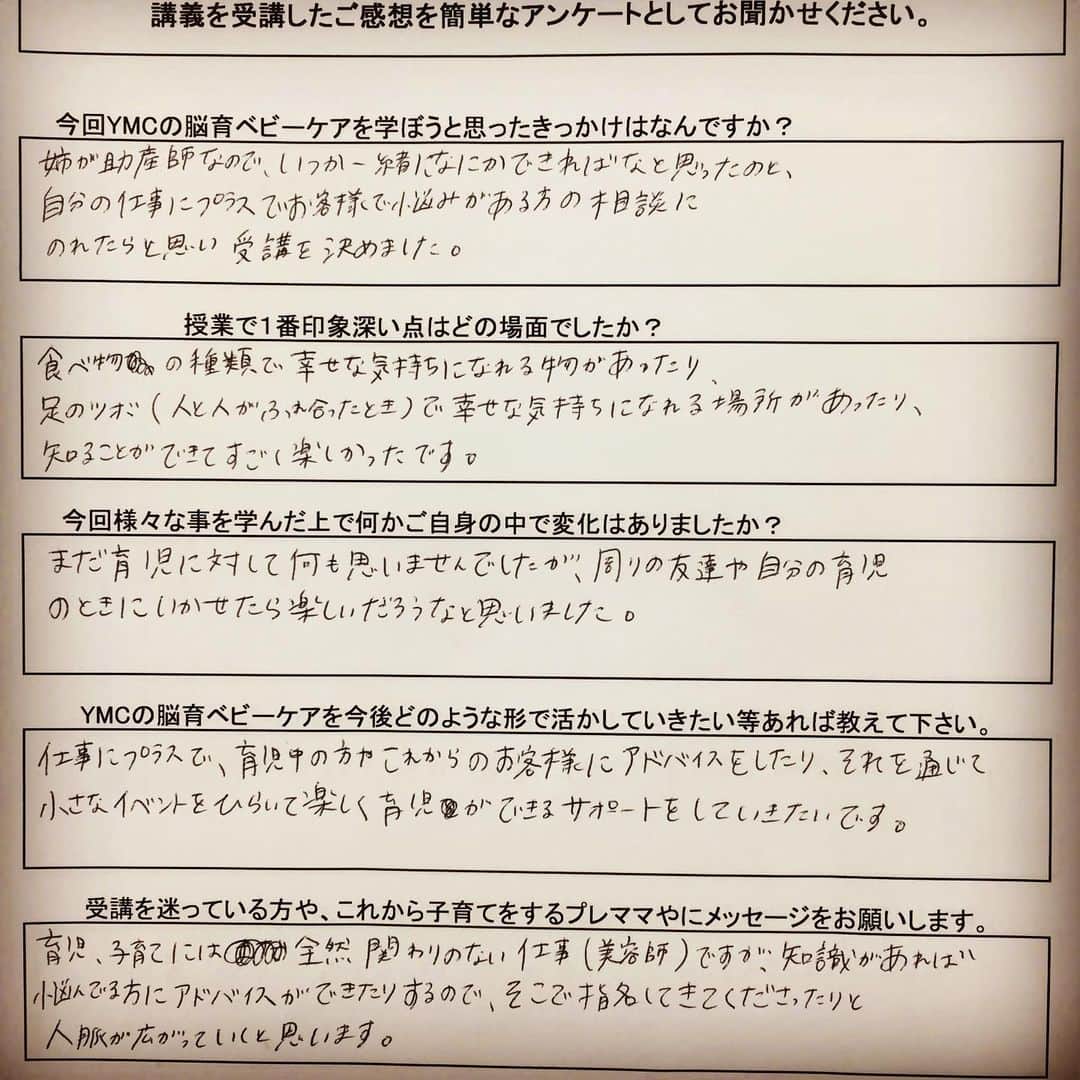 講義を受講したご感想を簡単なアンケートとしてお聞かせください。
今回YMCの脳育ベビーケアを学ぼうと思ったきっかけはなんですか？
姉が助産師なので、いつか一緒になにかできればなと思ったのと、
自分の仕事にプラスでお客様で小悩みがある方の相談に
のれたらと思い受講を決めました。
授業で１番印象深い点はどの場面でしたか？
食べ物の種類で幸せな気持ちになれる物があったり、
足のツボ(人と人がふれ合ったとき)で幸せな気持ちになれる場所があったり、
知ることができてすごく楽しかったです。
今回様々な事を学んだ上で何かご自身の中で変化はありましたか？
まだ育児に対して何も思いませんでしたが、周りの友達や自分の育児
のときにいかせたら楽しいだろうなと思いました。
YMCの脳育ベビーケアを今後どのような形で活かしていきたい等あれば教えて下さい。
仕事にプラスで、育児中の方やこれからのお客様にアドバイスをしたり、それを通じて
小さなイベントをひらいて楽しく育児ができるサポートをしていきたいです。
受講を迷っている方や、これから子育てをするプレママやにメッセージをお願いします。
育児、子育てには全然関わりのない仕事(美容師)ですが、知識があれば
小悩んでる方にアドバイスができたりするので、そこで指名してきてくださったりと
人脈が広がっていくと思います。